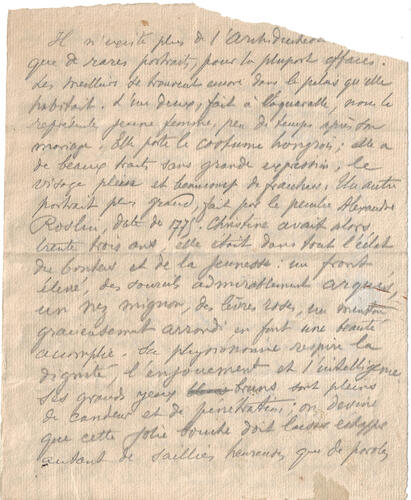 Il n'existe plus de l'Archiduchesse
que de rares portraits, pour la plupart effacés.
Les meilleurs se trouvent encore dans le palais qu'elle
habitait. L'un deux, fait à l'aquarelle, nous la
représente jeune femme, peu de temps après son
mariage. Elle porte le costume hongrois; elle a
de beaux traits sans grande expression, le
visage plein et beaucoup de fraicheur. Un autre
portrait plus grand, fait par le peintre Alexandre
Roslin, date de 1775. Christine avait alors
trente trois ans, elle était dans tout l'éclat
du bonheur et de la jeunesse: un front
élevé, des sourcils admirablement arqués,
un nez mignon, des lèvres roses, un menton
gracieusement arrondi en font une beauté
accomplie. Sa physionomie respire la
dignité l'enjouement et l'intelligence
Ses grands yeux bruns sont pleins
de candeur et de pénétration; on devine
que cette jolie bouche doit laisser échapper
autant de saillies heureuses que de paroles